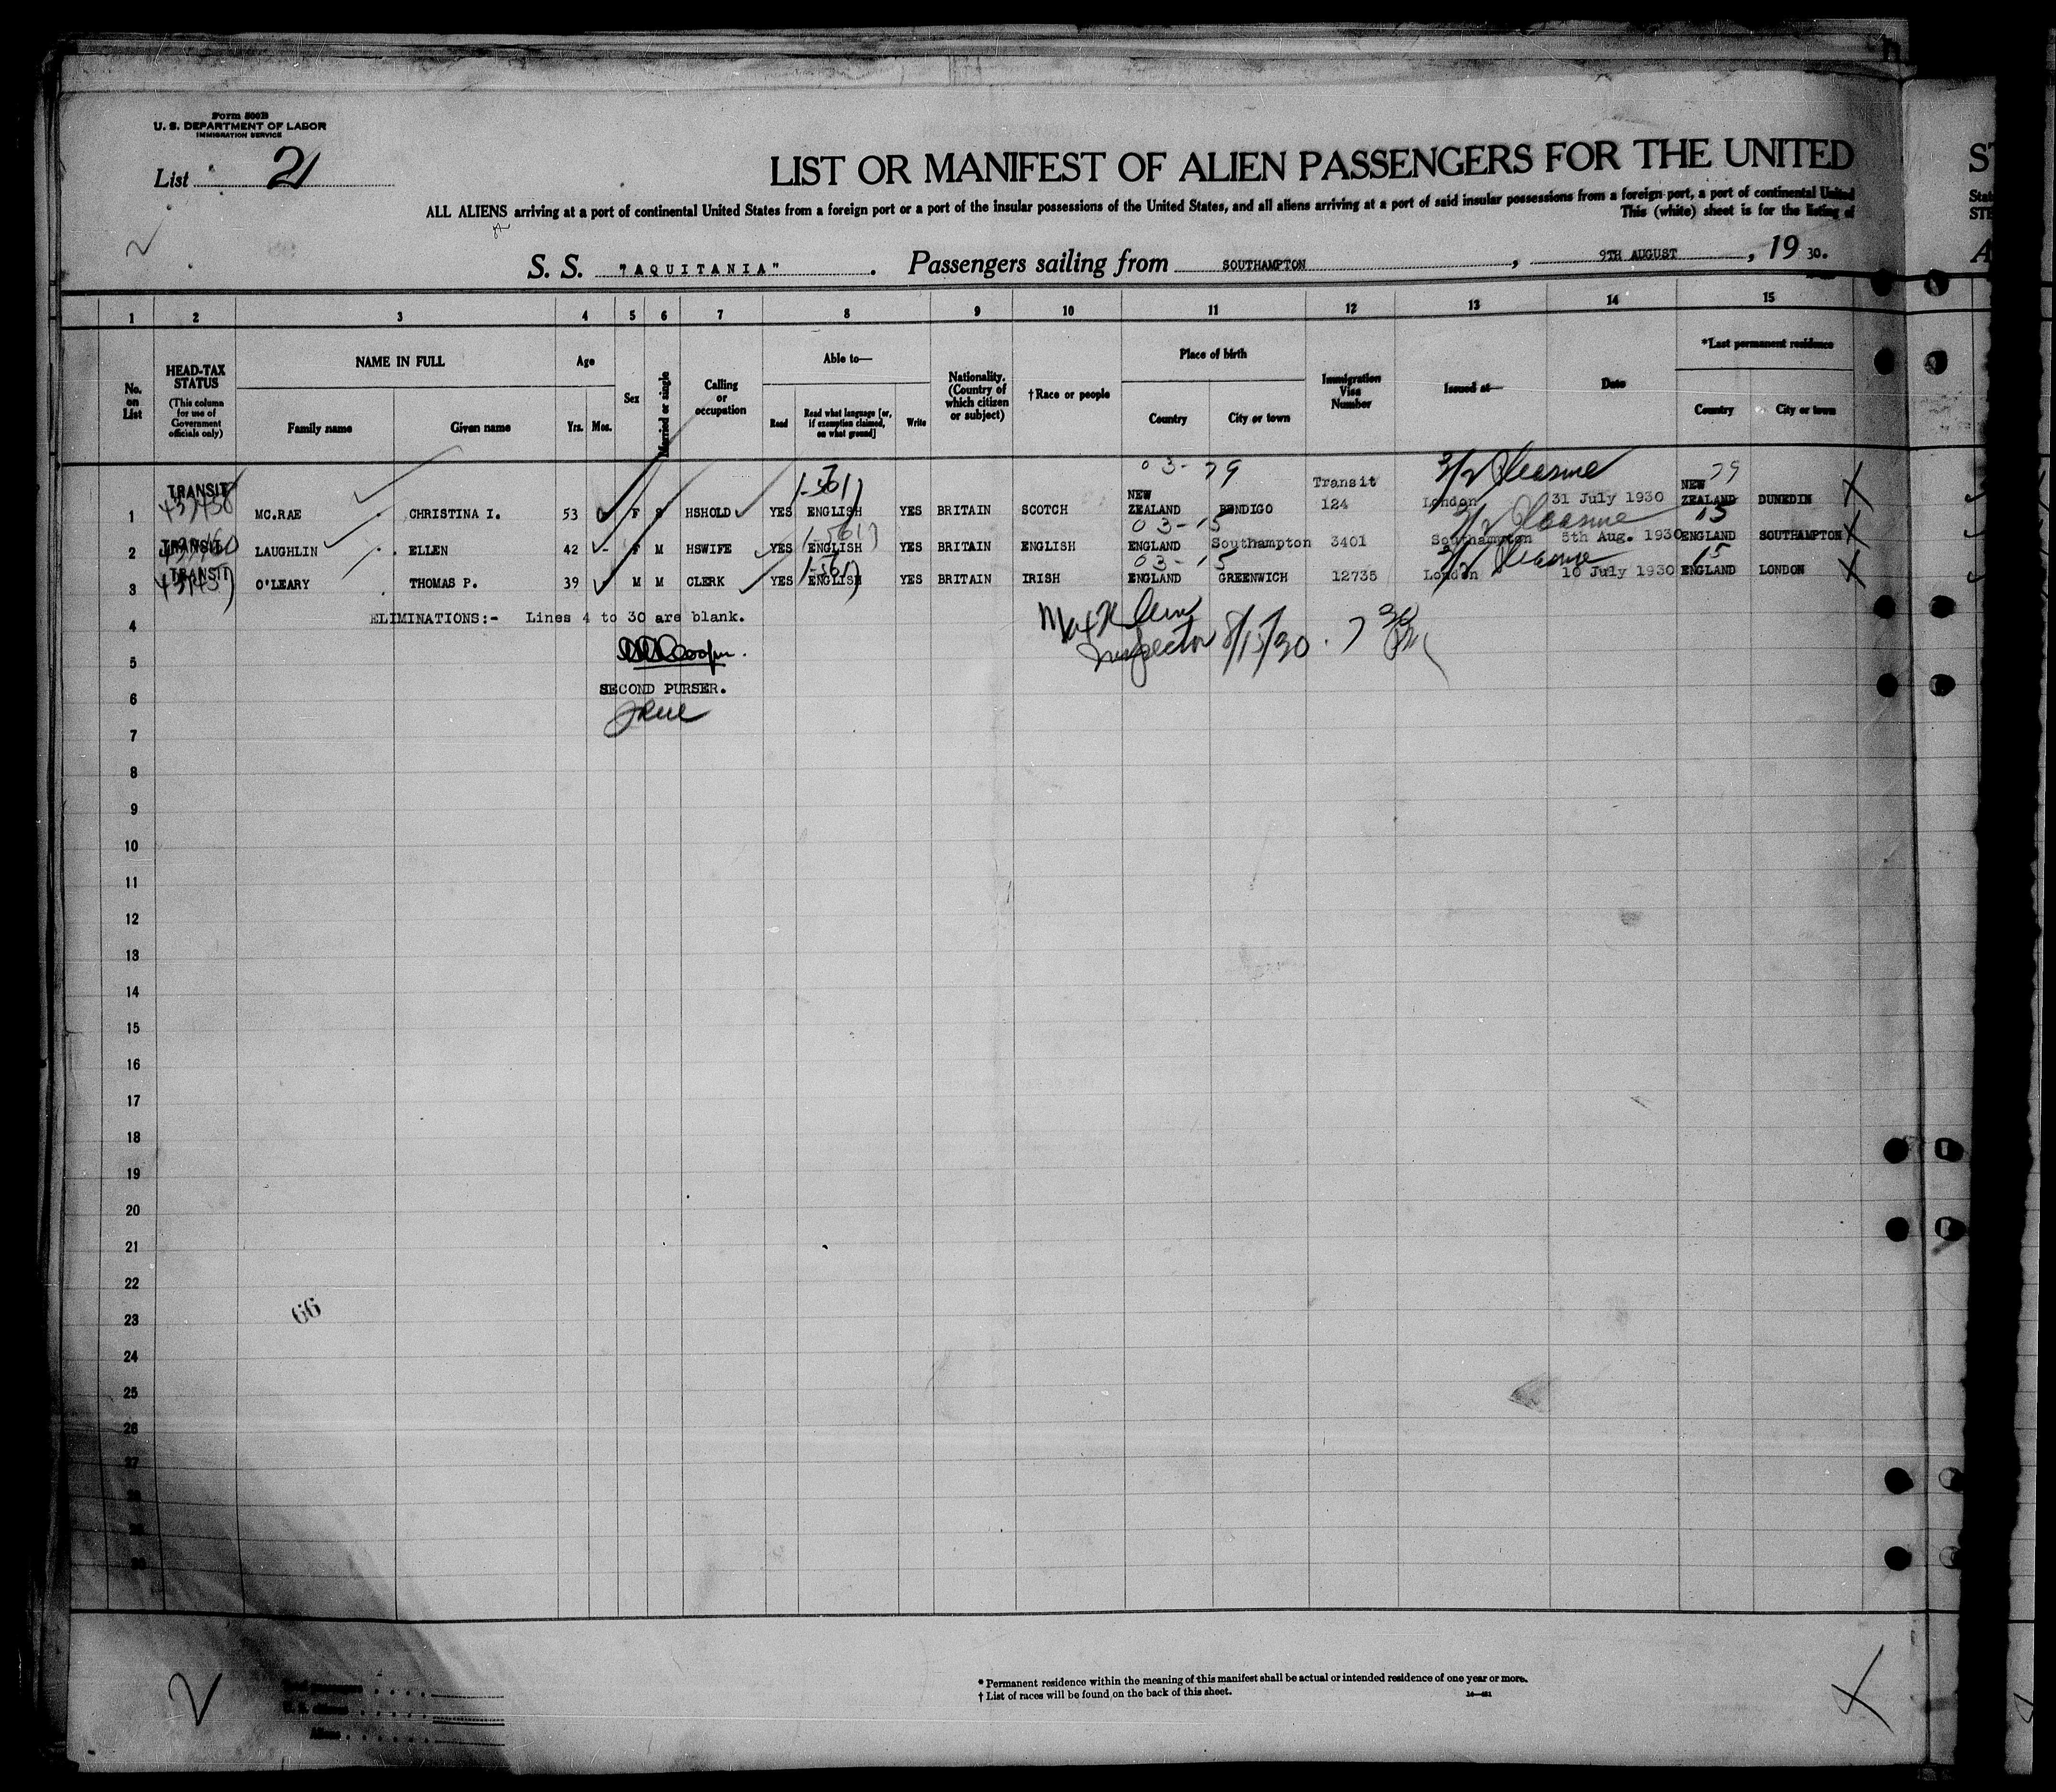 Form 500B
U. S. DEPARTMENT OF LABOR
IMMIGRATION SERVICE
List 21
LIST OR MANIFEST OF ALIEN PASSENGERS FOR THE UNITED
ALL ALIENS arriving at a port of continental United States from a foreign port or a port of the insular possessions of the United States, and all aliens arriving at a port of said insular possessions from a foreign port, a port of continental United
This (white) sheet is for the listing of
S. S. "AQUITANIA". Passengers sailing from SOUTHAMPTON, 9TH AUGUST, 19 30.
1 2 3 4 5 6 7 8 9 10 11 12 13 14 15
No. on List
HEAD-TAX STATUS
(This column for use of Government officials only)
NAME IN FULL
Family name Given name
Age
Yrs. Mos.
Sex
Married or single
Calling or occupation
Able to—
Read
Read what language [or, if exemption claimed, on what ground]
Write
Nationality. (Country of which citizen or subject)
†Race or people
Place of birth
Country City or town
Immigration Visa Number
Issued at—
Date
*Last permanent residence
Country City or town
03- 79 79
1 TRANSIT MC.RAE CHRISTINA I. 53 F S HSHOLD YES ENGLISH YES BRITAIN SCOTCH NEW ZEALAND BENDIGO Transit 124 London 31 July 1930 NEW ZEALAND DUNEDIN X
03-15 15
2 TRANSIT LAUGHLIN ELLEN 42 - F M HSWIFE YES ENGLISH YES BRITAIN ENGLISH ENGLAND Southampton 3401 Southampton 5th Aug. 1930 ENGLAND SOUTHAMPTON X
03-15 15
3 TRANSIT O'LEARY THOMAS P. 39 M M CLERK YES ENGLISH YES BRITAIN IRISH ENGLAND GREENWICH 12735 London 10 July 1930 ENGLAND LONDON X
4 ELIMINATIONS:- Lines 4 to 30 are blank.
Inspector 8/15/30. 7 30 PM
5
SECOND PURSER.
6
7
8
9
10
11
12
13
14
15
16
17
18
19
20
21
22
66
23
24
25
26
27
28
29
30
Total passengers
U. S. citizens
Aliens
* Permanent residence within the meaning of this manifest shall be actual or intended residence of one year or more.
† List of races will be found on the back of this sheet.